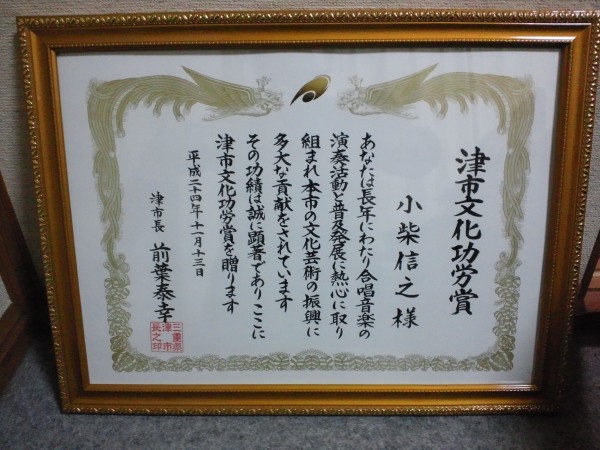 津市文化功労賞
小柴信之 様
あなたは長年にわたり合唱音楽の
演奏活動と普及発展に熱心に取り
組まれ本市の文化芸術の振興に
多大な貢献をされています
その功績は誠に顕著であり ここに
津市文化功労賞を贈ります
平成二十四年十一月十三日
津市長 前葉泰幸
三重県
津市
長之印